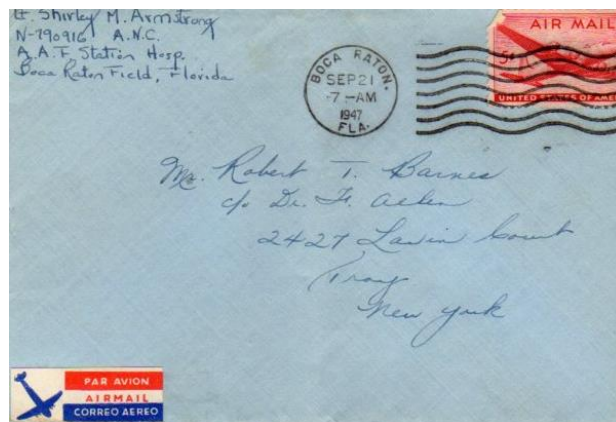 Lt. Shirley M. Armstrong
N-790916 A.N.C.
A.A.F Station Hosp.
Boca Raton Field, Florida
BOCA RATON.
SEP 21
7-AM
1947
FLA.
AIR MAIL
5¢
UNITED STATES OF AME
Mr. Robert T. Barnes
c/o Dr. F. Aeken
2427 Lavin Court
Troy
New York
PAR AVION
AIRMAIL
CORREO AEREO